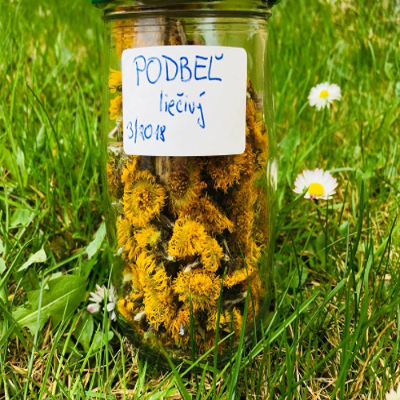 PODBEĽ
liečivý
3/2018